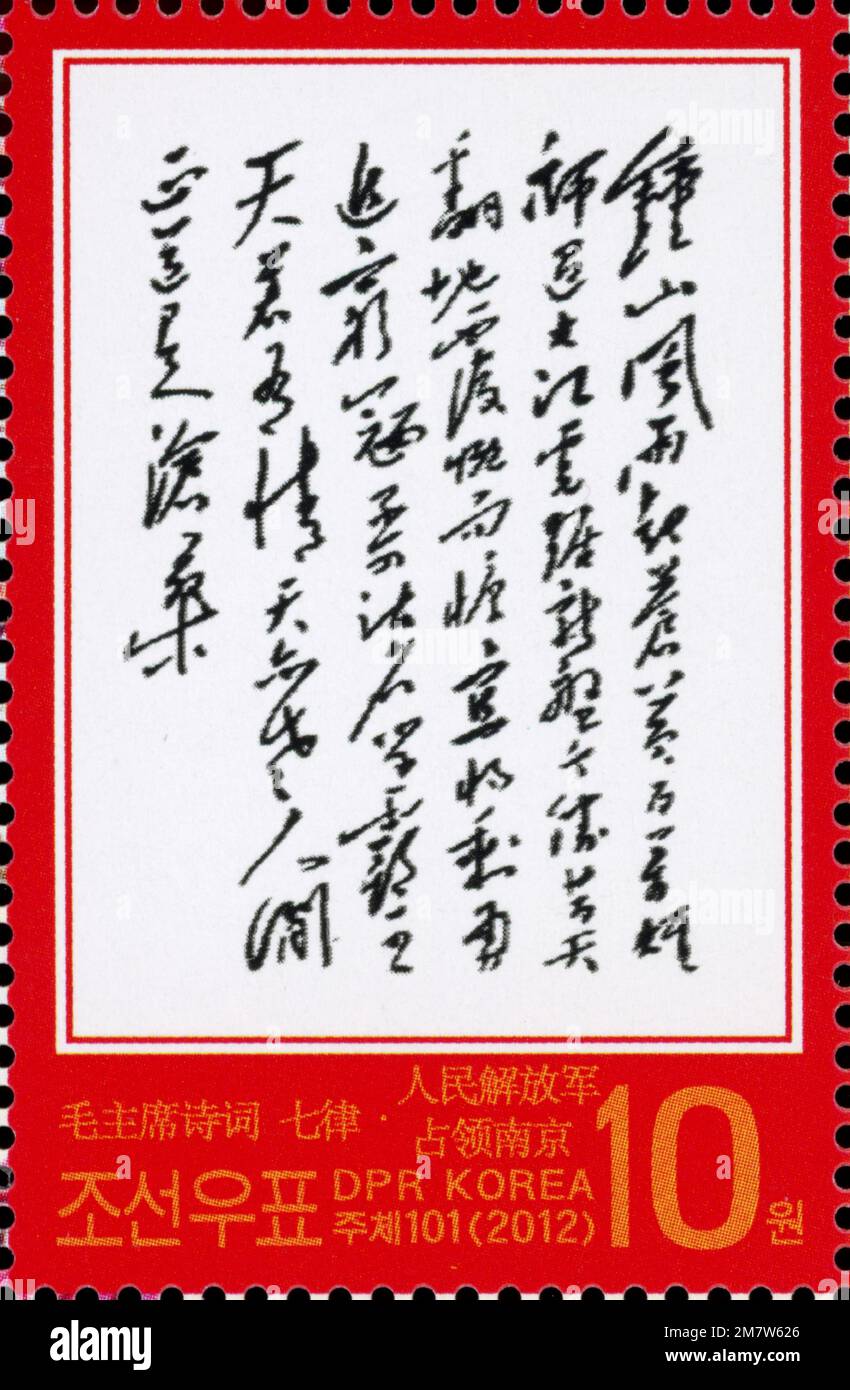 鐘山風雨起蒼黃百萬雄
師過大江虎踞龍盤今勝昔天
翻地覆慨而慷宜將剩勇
追窮寇不可沽名學霸王
天若有情天亦老人間
正道是滄桑
毛主席诗词 七律·人民解放军
占领南京
조선우표 DPR KOREA
주체101(2012)
10원
alamy
Image ID: 2M7W626
www.alamy.com